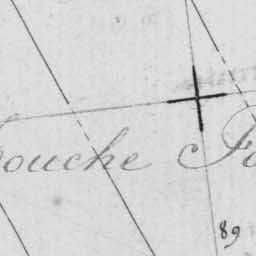 ouche Fo
89